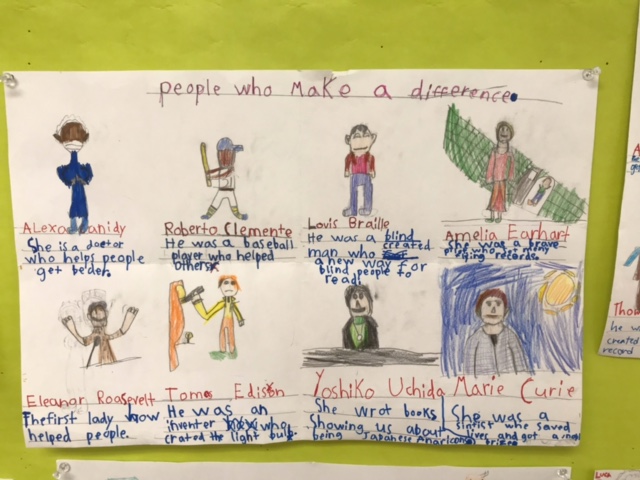 people who make a difference
Alexa Canidy
She is a doctor
who helps people
get beder.
Roberto Clemente
He was a baseball
player who helped
others
Louis Braille
He was a blind
created
man who
a new way for
blind people to
read.
Amelia Earhart
She was a brave
records.
Eleanor Roosevelt
The first lady how
helped people.
Tomos Edison
He was an
inventer who
crated the light bulb
Yoshiko Uchida
She wrot books
Showing us about
being Japanese
Marie Curie
She was a
sintist who saved
lives and got a
prize
Thom
he w
created
record